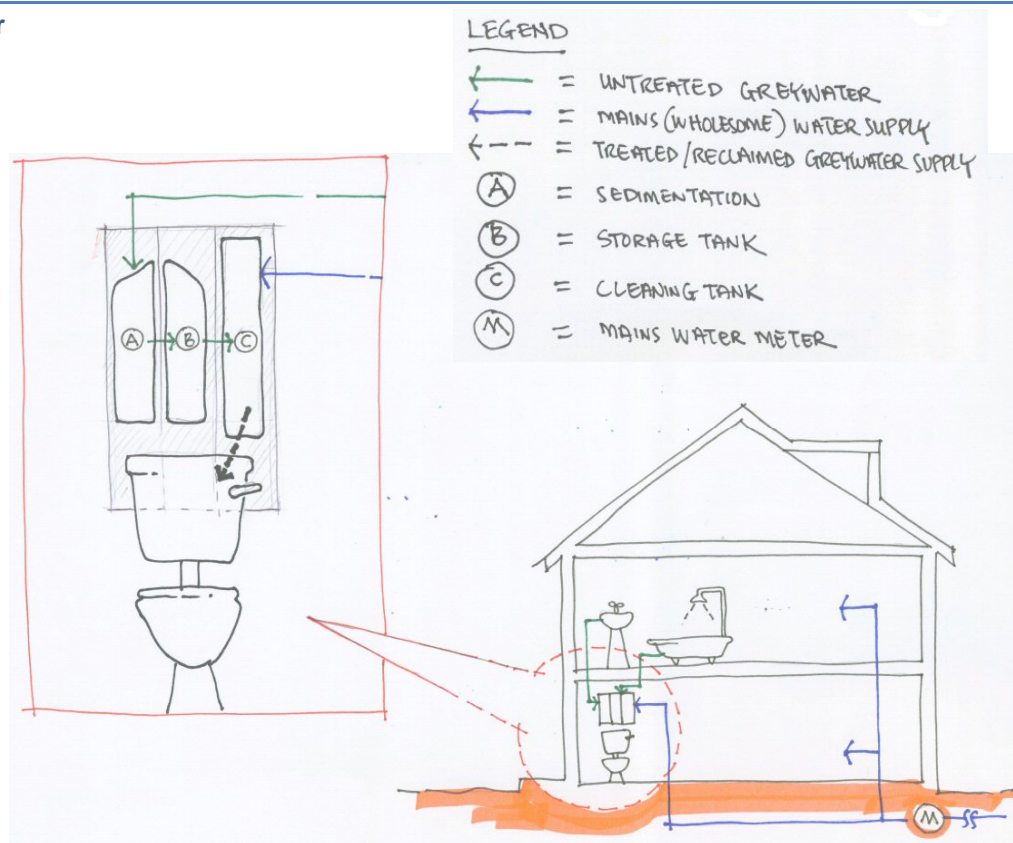 r
LEGEND
= UNTREATED GREYWATER
= MAINS (WHOLESOME) WATER SUPPLY
= TREATED/RECLAIMED GREYWATER SUPPLY
A = SEDIMENTATION
B = STORAGE TANK
C = CLEANING TANK
M = MAINS WATER METER
A B C
M